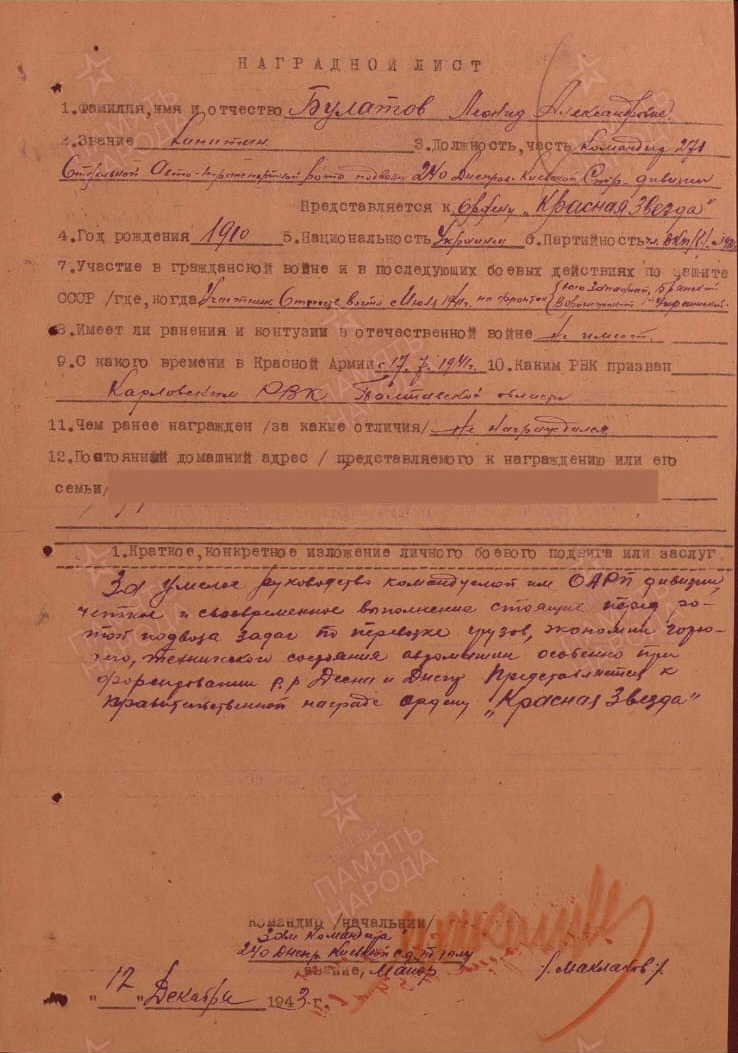 НАГРАДНОЙ ЛИСТ
1.Фамилия,имя и отчество Булатов Леонид Александрович
2.Звание Капитан 3.Должность,часть Командир 271
Отдельной Авто-транспортной роты подвоза 240 Днепров. Киевской Стр. дивизии
Представляется к Ордену „Красная Звезда"
4.Год рождения 1910 5.Национальность Украинец 6.Партийность чл. ВКП(б)
7.Участие в гражданской войне и в последующих боевых действиях по защите
СССР /где,когда Участник Отечеств. войны с Июля 1941г. на фронтах Юго Западный, Брянский
Воронежский 1 Украинский
8.Имеет ли ранения и контузии в отечественной войне Не имеет.
9.С какого времени в Красной Армии с 17.7.1941г. 10.Каким РВК призван
Карловским РВК Полтавской области
11.Чем ранее награжден /за какие отличия/ Не награждался
12.Постоянный домашний адрес / представляемого к награждению или его
семьи/
1.Краткое,конкретное изложение личного боевого подвига или заслуг
За умелое руководство командуемой им ОАРП дивизии,
четкое и своевременное выполнение стоящие перед ро-
той подвоза задач по перевозке грузов, экономии горю-
чего, технического состояния автомашин особенно при
форсировании р.р Десна и Днепр Представляется к
правительственной награде ордену „Красная Звезда"
Командир /начальник/
Зам Командира
240 Днепр. Киевской с.д. по тылу
звание, Майор /Маклаков/
"12" Декабря 1943 г.
ПАМЯТЬ
НАРОДА